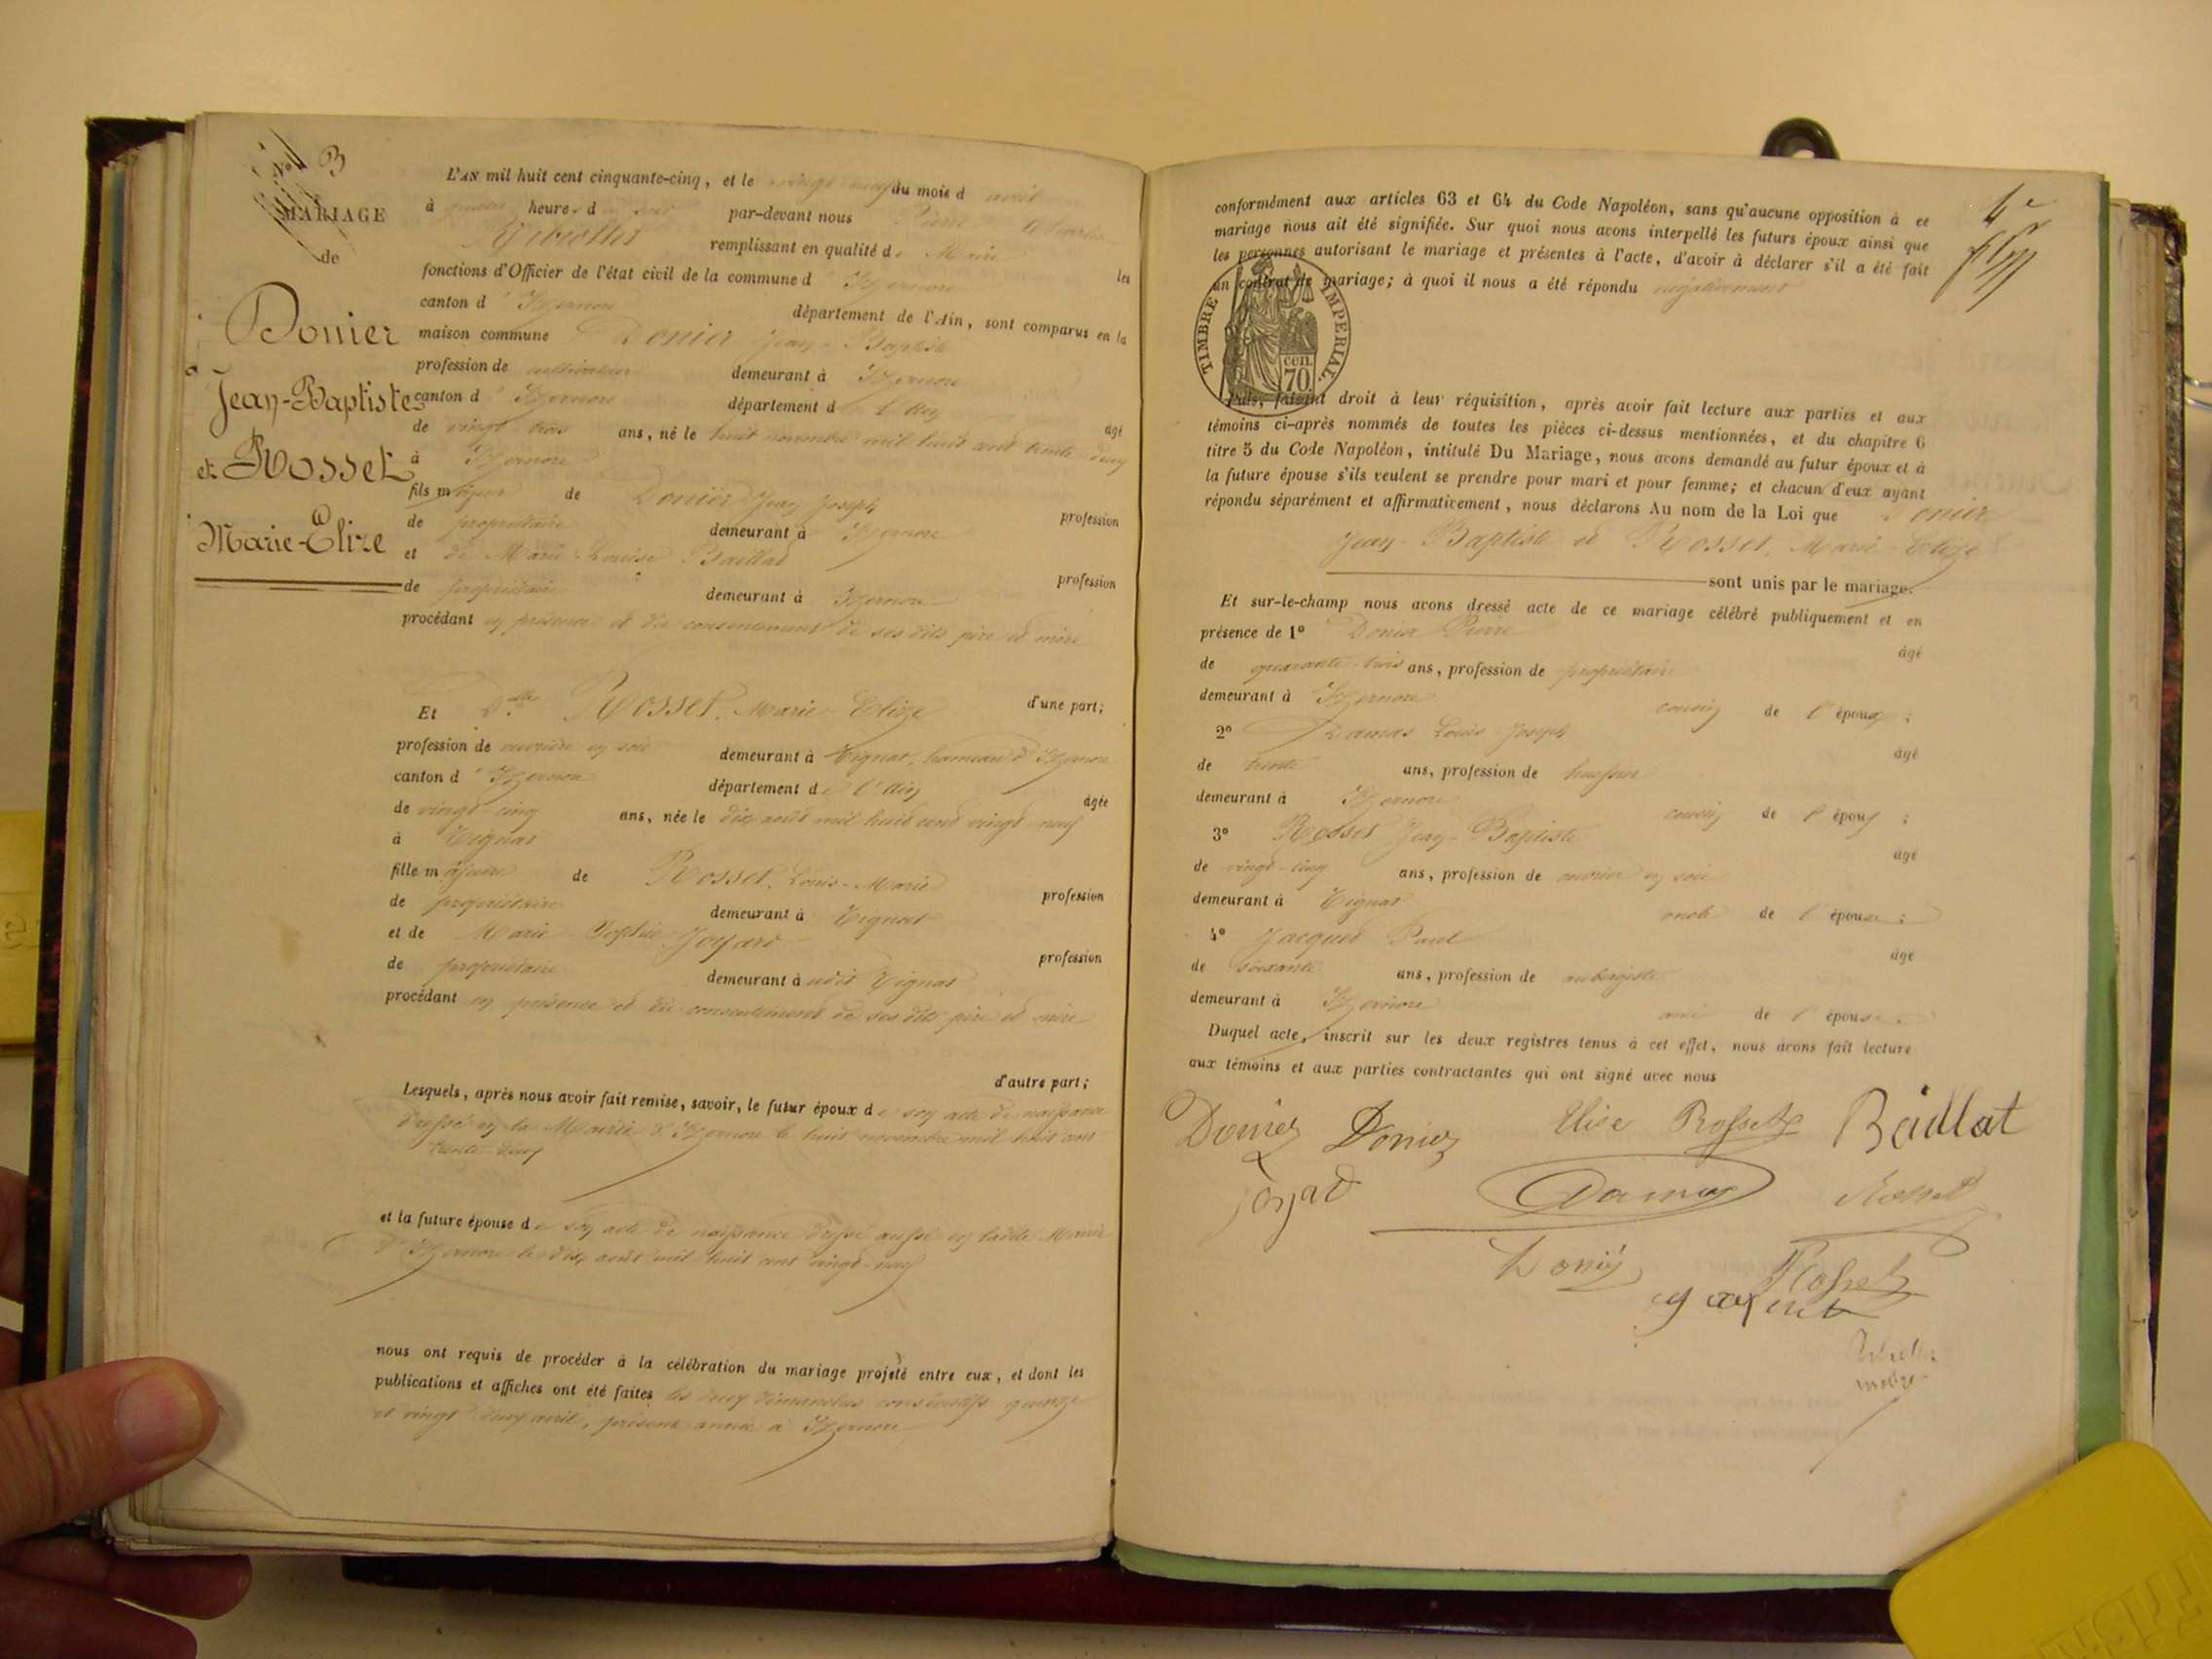 MARIAGE
de
Donier
Jean-Baptiste
et Rosset
Marie-Elize
L'AN mil huit cent cinquante-cinq, et le vingt du mois d avril
à heure d par-devant nous Pierre
remplissant en qualité de Maire les
fonctions d'Officier de l'état civil de la commune d'Izernore
canton d'Izernore département de l'Ain, sont comparus en la
maison commune Donier Jean-Baptiste
profession de cultivateur demeurant à Izernore
canton d'Izernore département de l'Ain âgé
de vingt-trois ans, né le huit novembre mil huit cent trente deux
à Izernore
fils majeur de Donier Jean Joseph profession
de propriétaire demeurant à Izernore
et de Marie-Louise Baillat profession
de propriétaire demeurant à Izernore
procédant en présence et du consentement de ses dits père et mère
d'une part;
Et Dlle Rosset, Marie-Elize
profession de ouvrière en soie demeurant à Tignat, hameau d'Izernore
canton d'Izernore département de l'Ain âgée
de vingt-cinq ans, née le dix août mil huit cent vingt-neuf
à Tignat
fille majeure de Rosset, Louis-Marie profession
de propriétaire demeurant à Tignat
et de Marie Sophie Joyard profession
de propriétaire demeurant à udit Tignat
procédant en présence et du consentement de ses dits père et mère
d'autre part;
Lesquels, après nous avoir fait remise, savoir, le futur époux de son acte de naissance
dressé en la Mairie d'Izernore le huit novembre mil huit cent
trente-deux
et la future épouse de son acte de naissance dressé aussi en ladite Mairie
d'Izernore le dix août mil huit cent vingt-neuf
nous ont requis de procéder à la célébration du mariage projeté entre eux, et dont les
publications et affiches ont été faites les deux dimanches consécutifs quinze
et vingt deux avril, présente année à Izernore
conformément aux articles 63 et 64 du Code Napoléon, sans qu'aucune opposition à ce
mariage nous ait été signifiée. Sur quoi nous avons interpellé les futurs époux ainsi que
les personnes autorisant le mariage et présentes à l'acte, d'avoir à déclarer s'il a été fait
un contrat de mariage; à quoi il nous a été répondu négativement
TIMBRE IMPERIAL.
70 cen.
Puis, faisant droit à leur réquisition, après avoir fait lecture aux parties et aux
témoins ci-après nommés de toutes les pièces ci-dessus mentionnées, et du chapitre 6
titre 5 du Code Napoléon, intitulé Du Mariage, nous avons demandé au futur époux et à
la future épouse s'ils veulent se prendre pour mari et pour femme; et chacun d'eux ayant
répondu séparément et affirmativement, nous déclarons Au nom de la Loi que Donier
Jean-Baptiste et Rosset, Marie-Elize
sont unis par le mariage.
Et sur-le-champ nous avons dressé acte de ce mariage célébré publiquement et en
présence de 1º Donier Pierre âgé
de quarante-trois ans, profession de propriétaire
demeurant à Izernore cousin de l'époux;
2º Damas Louis Joseph âgé
de trente ans, profession de huissier
demeurant à Izernore cousin de l'époux;
3º Rosset Jean-Baptiste âgé
de vingt-cinq ans, profession de ouvrier en soie
demeurant à Tignat oncle de l'épouse;
4º Jacquet Paul âgé
de soixante ans, profession de aubergiste
demeurant à Izernore ami de l'épouse.
Duquel acte, inscrit sur les deux registres tenus à cet effet, nous avons fait lecture
aux témoins et aux parties contractantes qui ont signé avec nous
Donier Donier Elise Rosset Baillat
joyard Damas Rosset
Donier Rosset